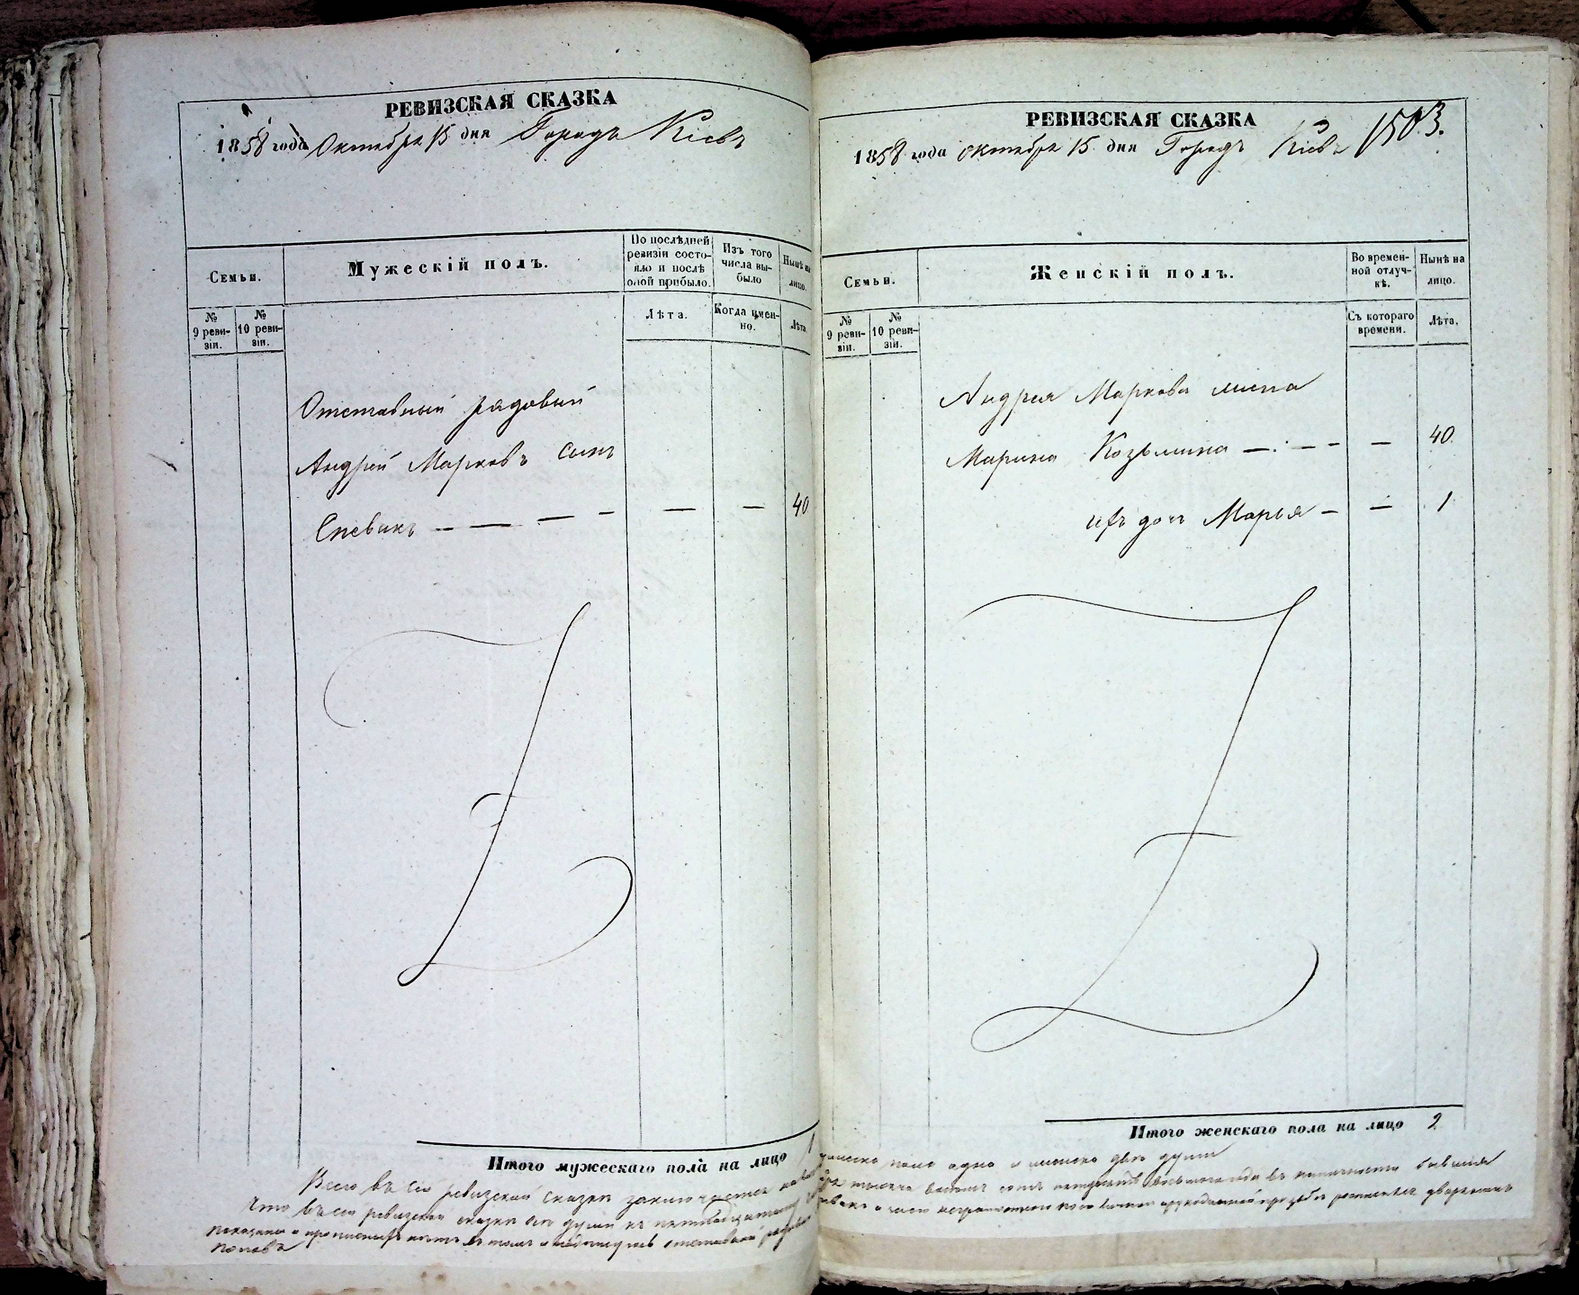 РЕВИЗСКАЯ СКАЗКА
1858 года Октября 15 дня Городъ Кіевъ
Семьи.
Мужескій полъ.
По послѣдней ревизіи состояло и послѣ оной прибыло.
Изъ того числа выбыло
Нынѣ на лицо.
№ 9 ревизіи.
№ 10 ревизіи.
Лѣта.
Когда именно.
Лѣта.
Отставный рядовый
Андрей Марковъ сынъ
Спевакъ — — — — — — 40
Итого мужескаго пола на лицо 1
РЕВИЗСКАЯ СКАЗКА
1858 года октября 15 дня Городъ Кіевъ 1503.
Семьи.
Женскій полъ.
Во временной отлучкѣ.
Нынѣ на лицо.
№ 9 ревизіи.
№ 10 ревизіи.
Съ котораго времени.
Лѣта.
Андрея Маркова жена
Марина Козьмина — — — — 40
ихъ дочь Марья — — 1
Итого женскаго пола на лицо 2
Всего въ сей ревизской сказки заключается
мужеска пола одна и женска двѣ души
Что въ сей ревизской сказки все души къ
показаны и